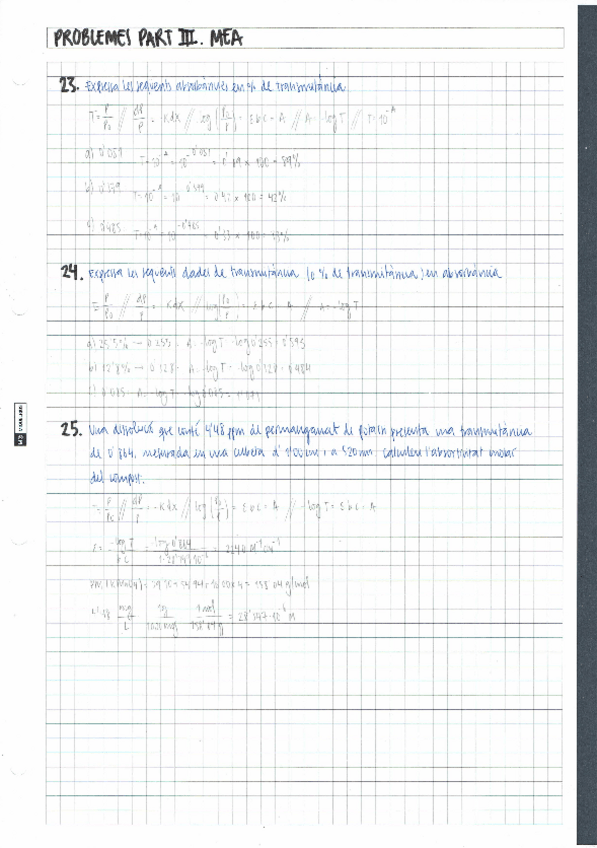 PROBLEMES PART III. MEA
23. Expressa les següents absorbàncies en % de transmitància
T= P/P₀ // dP/P = -Kdx // log(P₀/P) = εbc = A // A= -logT // T=10^-A
a) 0'051 T=10^-A = 10^-0'051 = 0'89 x 100 = 89%
b) T=10^-A = 10 x 100 = 42%
c) 0'485 T=10^-A = 10^-0'485 = 0'33 x 100 = 33%
24. Expressa les següents dades de transmitància (o % de transmitància) en absorbància
T= P/P₀ // dP/P = -Kdx // log(P₀/P) = εbc = A // A= -logT
a) 25'5% → 0'255 A= -logT = -log0'255 = 0'593
b) → A= -logT
c) A= -logT
25. Una dissolució que conté 4'48 ppm de permanganat de potassi presenta una transmitància
de 0'864, mesurada en una cubeta d' 1'00cm i a 520nm. Calculeu l'absortivitat molar
del compost.
T= P/P₀ // dP/P = -Kdx // log(P₀/P) = εbc = A // -logT= εbc = A
ε = -logT/bc = -log0'864 = 2240 M⁻¹cm⁻¹
x4 = 158'04 g/mol
4'48 mg/L 1g/1000mg 1mol/158'04g = 28'347·10⁻⁶ M